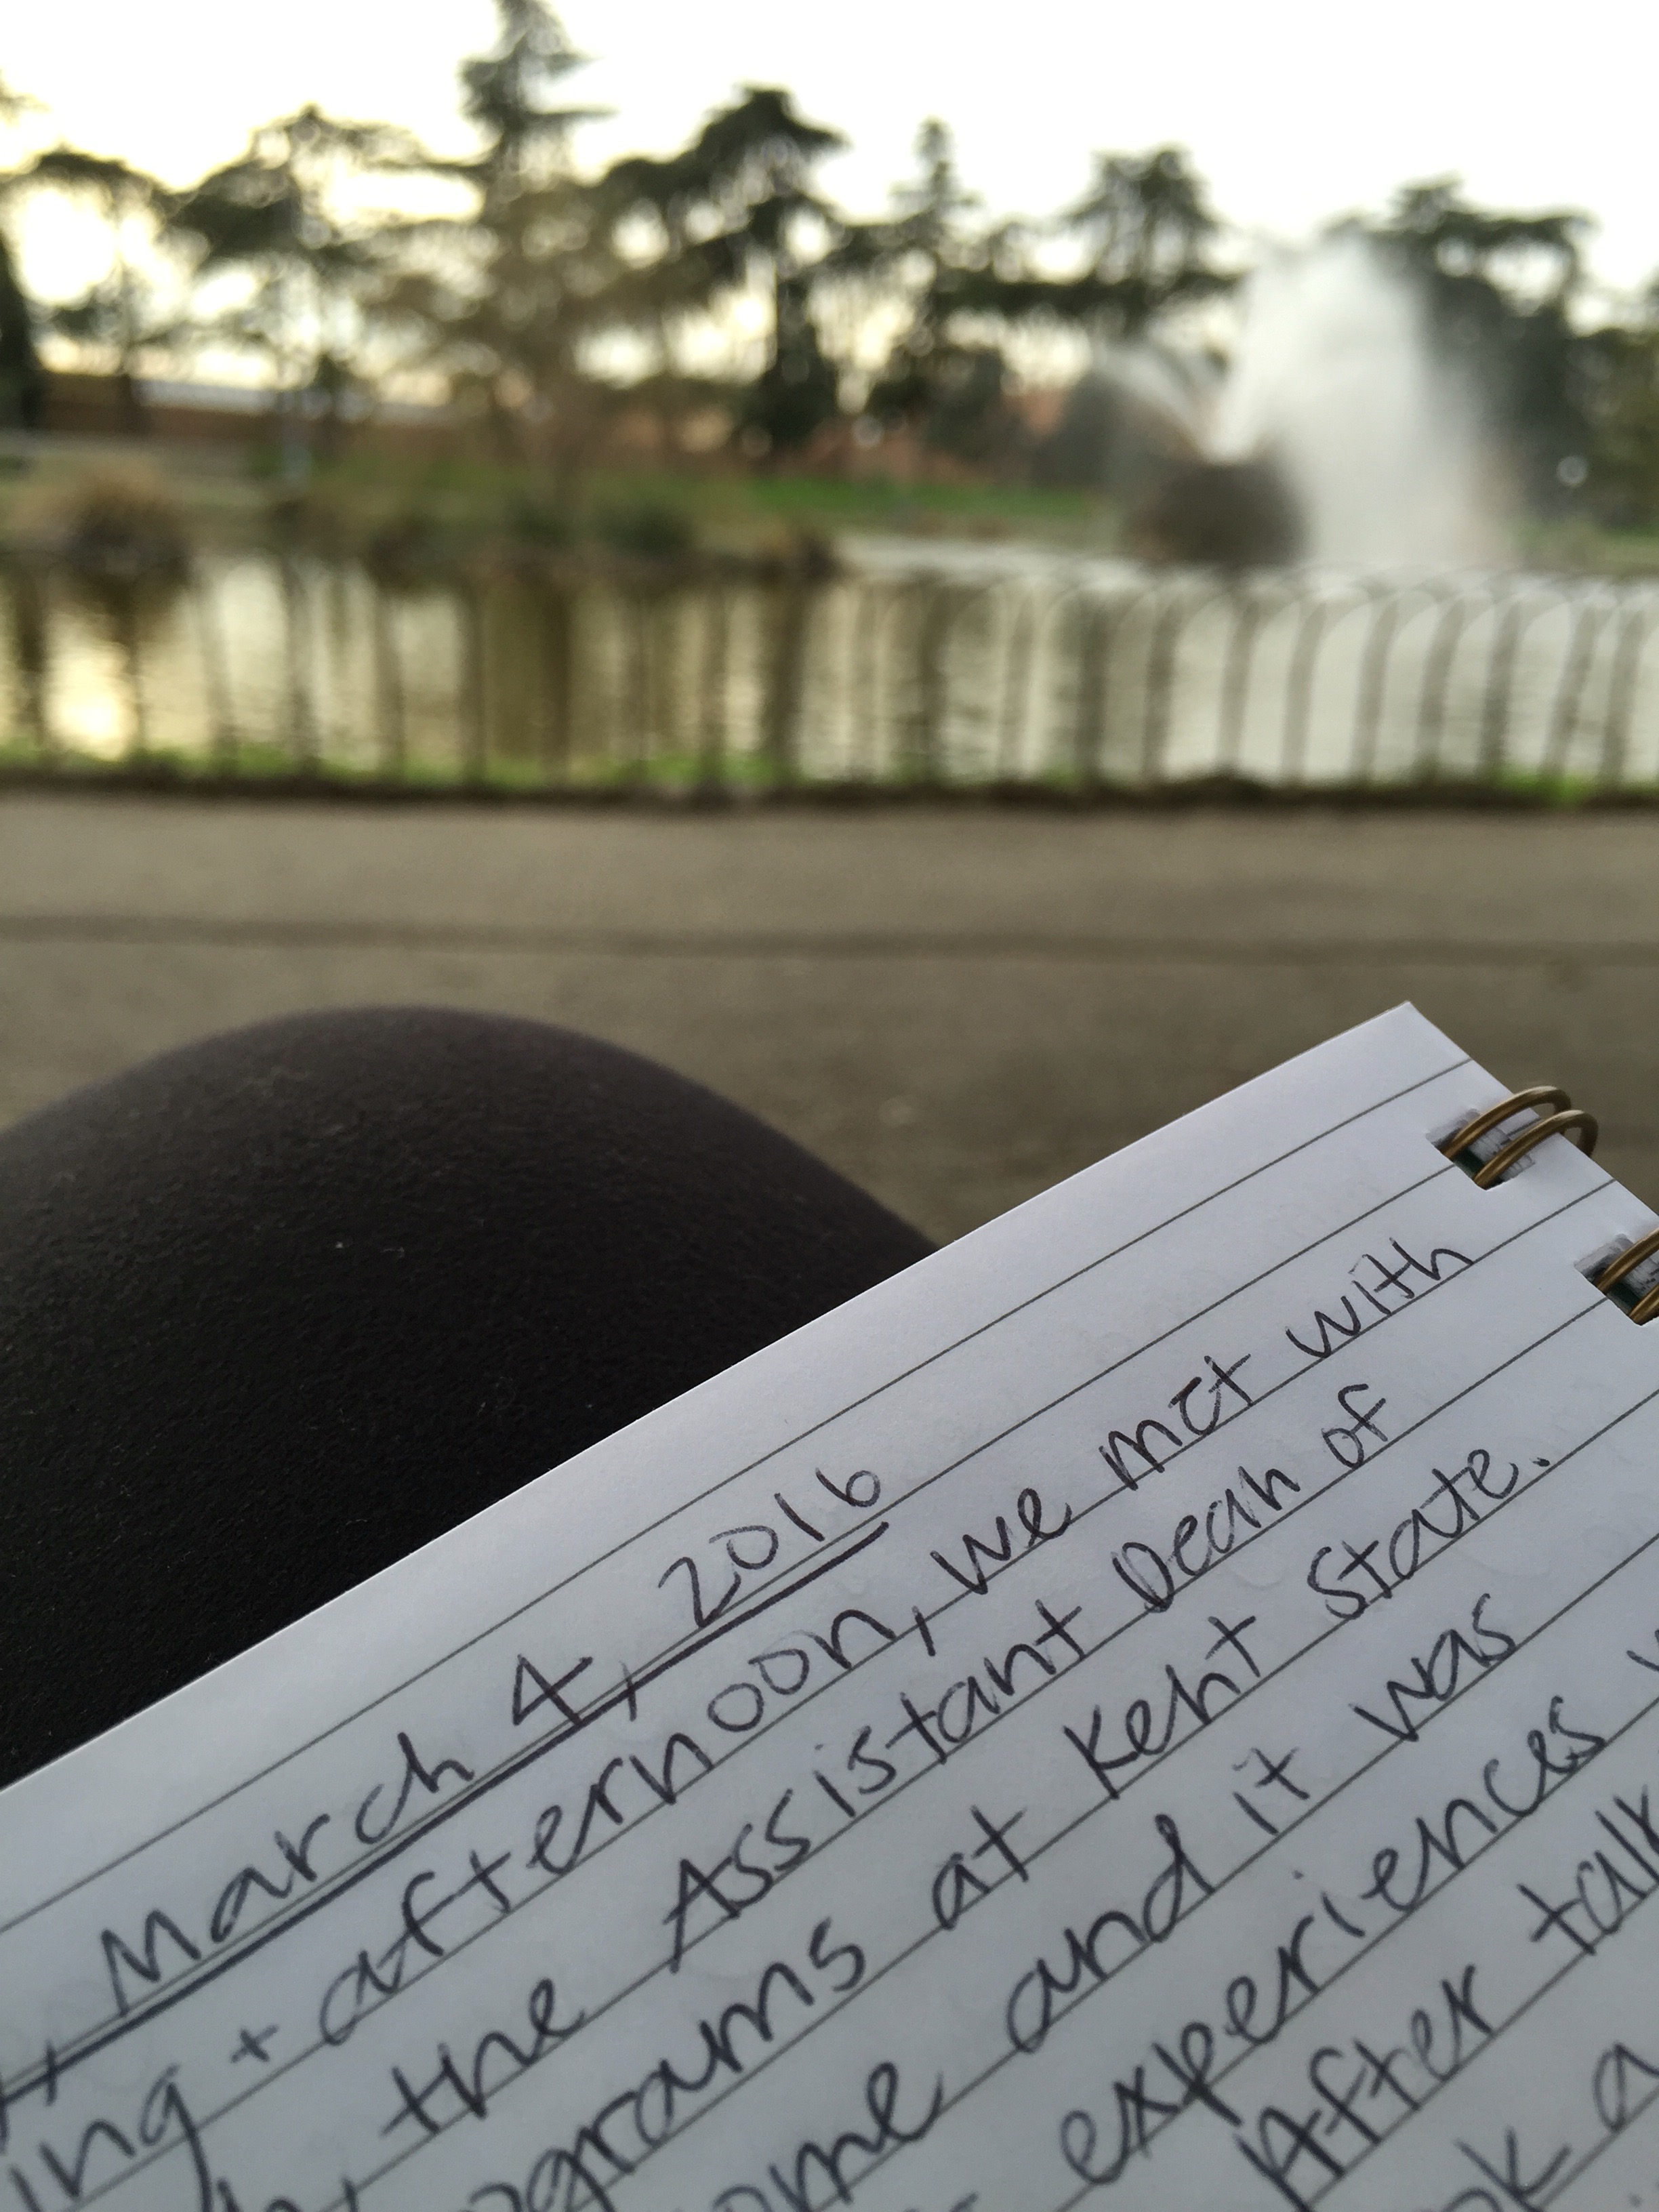 March 4, 2016
ing + afternoon, we met with
the Assistant Dean of
ograms at Kent State.
ome and it was
experiences
After talk
k a